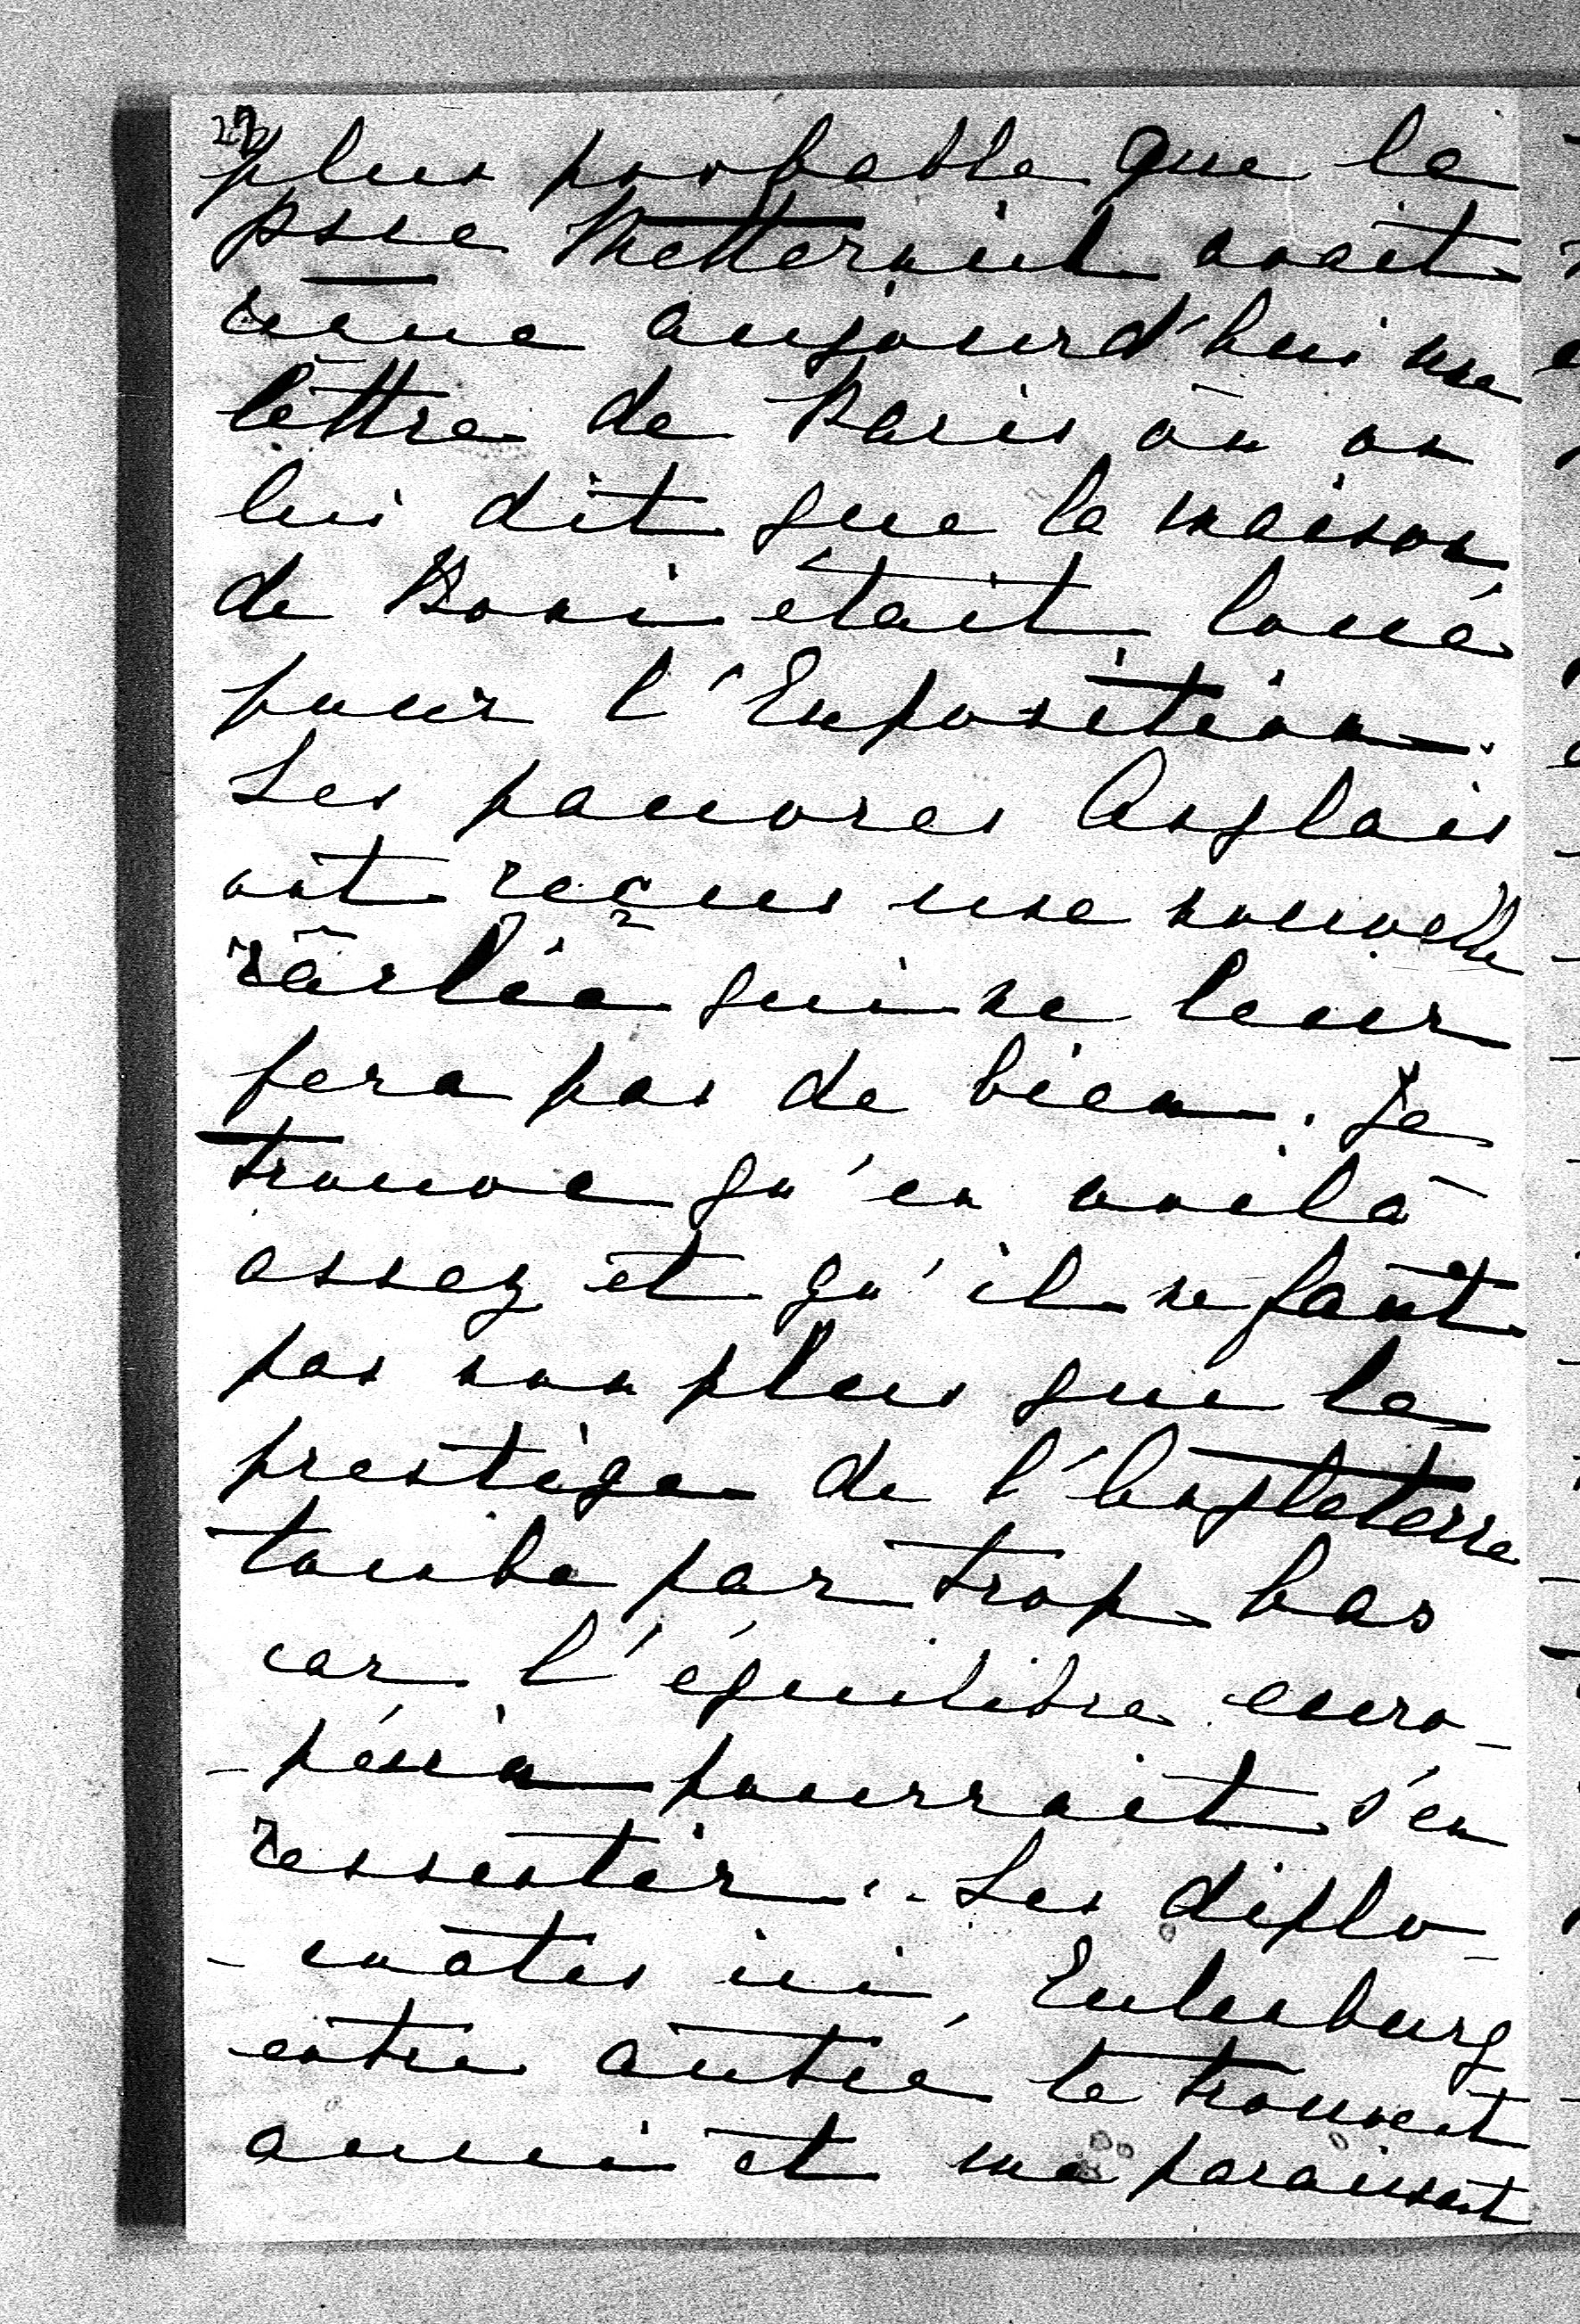 27
plus probable que la
psse Metternich avait
reçue aujourd'hui une
lettre de Paris où on
lui dit que la maison
de Boni était louée
pour l'Exposition.
Les pauvres Anglais
ont reçus une nouvelle
râclée qui ne leur
fera pas de bien. Je
trouve qu'en voilà
assez et qu'il ne faut
pas non plus que le
prestige de l'Angleterre
tombe par trop bas
car l'équilibre euro-
-péen pourrait s'en
ressentir. Les diplo-
-mates ici, Eulenburg
entre autre le trouvent
aussi et me paraissent